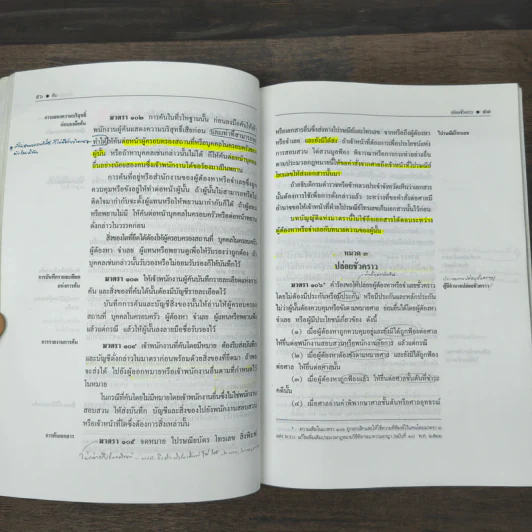 ๕๖ • ค้น
การแสดงความบริสุทธิ์
ก่อนลงมือค้น
มาตรา ๑๐๒ การค้นในที่รโหฐานนั้น ก่อนลงมือค้นให้เจ้า
พนักงานผู้ค้นแสดงความบริสุทธิ์เสียก่อน และเท่าที่สามารถจะ
ทำได้ให้ค้นต่อหน้าผู้ครอบครองสถานที่หรือบุคคลในครอบครัวของ
ผู้นั้น หรือถ้าหาบุคคลเช่นกล่าวนั้นไม่ได้ ก็ให้ค้นต่อหน้าบุคคล
อื่นอย่างน้อยสองคนซึ่งเจ้าพนักงานได้ขอร้องมาเป็นพยาน
การค้นที่อยู่หรือสำนักงานของผู้ต้องหาหรือจำเลยซึ่งถูก
ควบคุมหรือขังอยู่ให้ทำต่อหน้าผู้นั้น ถ้าผู้นั้นไม่สามารถหรือไม่
ติดใจมากำกับจะตั้งผู้แทนหรือให้พยานมากำกับก็ได้ ถ้าผู้แทน
หรือพยานไม่มี ให้ค้นต่อหน้าบุคคลในครอบครัวหรือต่อหน้าพยาน
ดังกล่าวในวรรคก่อน
สิ่งของใดที่ยึดได้ต้องให้ผู้ครอบครองสถานที่ บุคคลในครอบครัว
ผู้ต้องหา จำเลย ผู้แทนหรือพยานดูเพื่อให้รับรองว่าถูกต้อง ถ้า
บุคคลเช่นกล่าวนั้นรับรองหรือไม่ยอมรับรองก็ให้บันทึกไว้
การบันทึกรายละเอียด
แห่งการค้น
มาตรา ๑๐๓ ให้เจ้าพนักงานผู้ค้นบันทึกรายละเอียดแห่งการ
ค้น และสิ่งของที่ค้นได้นั้นต้องมีบัญชีรายละเอียดไว้
บันทึกการค้นและบัญชีสิ่งของนั้นให้อ่านให้ผู้ครอบครอง
สถานที่ บุคคลในครอบครัว ผู้ต้องหา จำเลย ผู้แทนหรือพยานฟัง
แล้วแต่กรณี แล้วให้ผู้นั้นลงลายมือชื่อรับรองไว้
การรายงานการค้น
มาตรา ๑๐๔ เจ้าพนักงานที่ค้นโดยมีหมาย ต้องรีบส่งบันทึก
และบัญชีดังกล่าวในมาตราก่อนพร้อมด้วยสิ่งของที่ยึดมา ถ้าพอ
จะส่งได้ ไปยังผู้ออกหมายหรือเจ้าพนักงานอื่นตามที่กำหนดไว้
ในหมาย
ในกรณีที่ค้นโดยไม่มีหมายโดยเจ้าพนักงานอื่นซึ่งไม่ใช่พนักงาน
สอบสวน ให้ส่งบันทึก บัญชีและสิ่งของไปยังพนักงานสอบสวน
หรือเจ้าหน้าที่ใดซึ่งต้องการสิ่งเหล่านั้น
การค้นเอกสาร
มาตรา ๑๐๕ จดหมาย ไปรษณียบัตร โทรเลข สิ่งพิมพ์
ปล่อยชั่วคราว • ๕๗
หรือเอกสารอื่นซึ่งส่งทางไปรษณีย์และโทรเลข จากหรือถึงผู้ต้องหา
หรือจำเลย และยังมิได้ส่ง ถ้าเจ้าหน้าที่ต้องการเพื่อประโยชน์แห่ง
การสอบสวน ไต่สวนมูลฟ้อง พิจารณาหรือการกระทำอย่างอื่น
ตามประมวลกฎหมายนี้ให้ขอคำสั่งจากศาลถึงเจ้าหน้าที่ไปรษณีย์
โทรเลขให้ส่งเอกสารนั้นมา
ถ้าอธิบดีกรมตำรวจหรือข้าหลวงประจำจังหวัดเห็นว่าเอกสาร
นั้นต้องการใช้เพื่อการดังกล่าวแล้ว ระหว่างที่ขอคำสั่งต่อศาลมี
อำนาจขอให้เจ้าหน้าที่ฝ่ายไปรษณีย์โทรเลขเก็บเอกสารนั้นไว้ก่อน
บทบัญญัติแห่งมาตรานี้ไม่ใช้ถึงเอกสารโต้ตอบระหว่าง
ผู้ต้องหาหรือจำเลยกับทนายความของผู้นั้น
หมวด ๓
ปล่อยชั่วคราว
มาตรา ๑๐๖ คำร้องขอให้ปล่อยผู้ต้องหาหรือจำเลยชั่วคราว
โดยไม่ต้องมีประกันหรือมีประกัน หรือมีประกันและหลักประกัน
ไม่ว่าผู้นั้นต้องควบคุมหรือขังตามหมายศาล ย่อมยื่นได้โดยผู้ต้องหา
จำเลย หรือผู้มีประโยชน์เกี่ยวข้อง ดังนี้
(๑) เมื่อผู้ต้องหาถูกควบคุมอยู่และยังมิได้ถูกฟ้องต่อศาล
ให้ยื่นต่อพนักงานสอบสวนหรือพนักงานอัยการ แล้วแต่กรณี
(๒) เมื่อผู้ต้องหาต้องขังตามหมายศาล และยังมิได้ถูกฟ้อง
ต่อศาล ให้ยื่นต่อศาลนั้น
(๓) เมื่อผู้ต้องหาถูกฟ้องแล้ว ให้ยื่นต่อศาลชั้นต้นที่ชำระ
คดีนั้น
(๔) เมื่อศาลอ่านคำพิพากษาศาลชั้นต้นหรือศาลอุทธรณ์